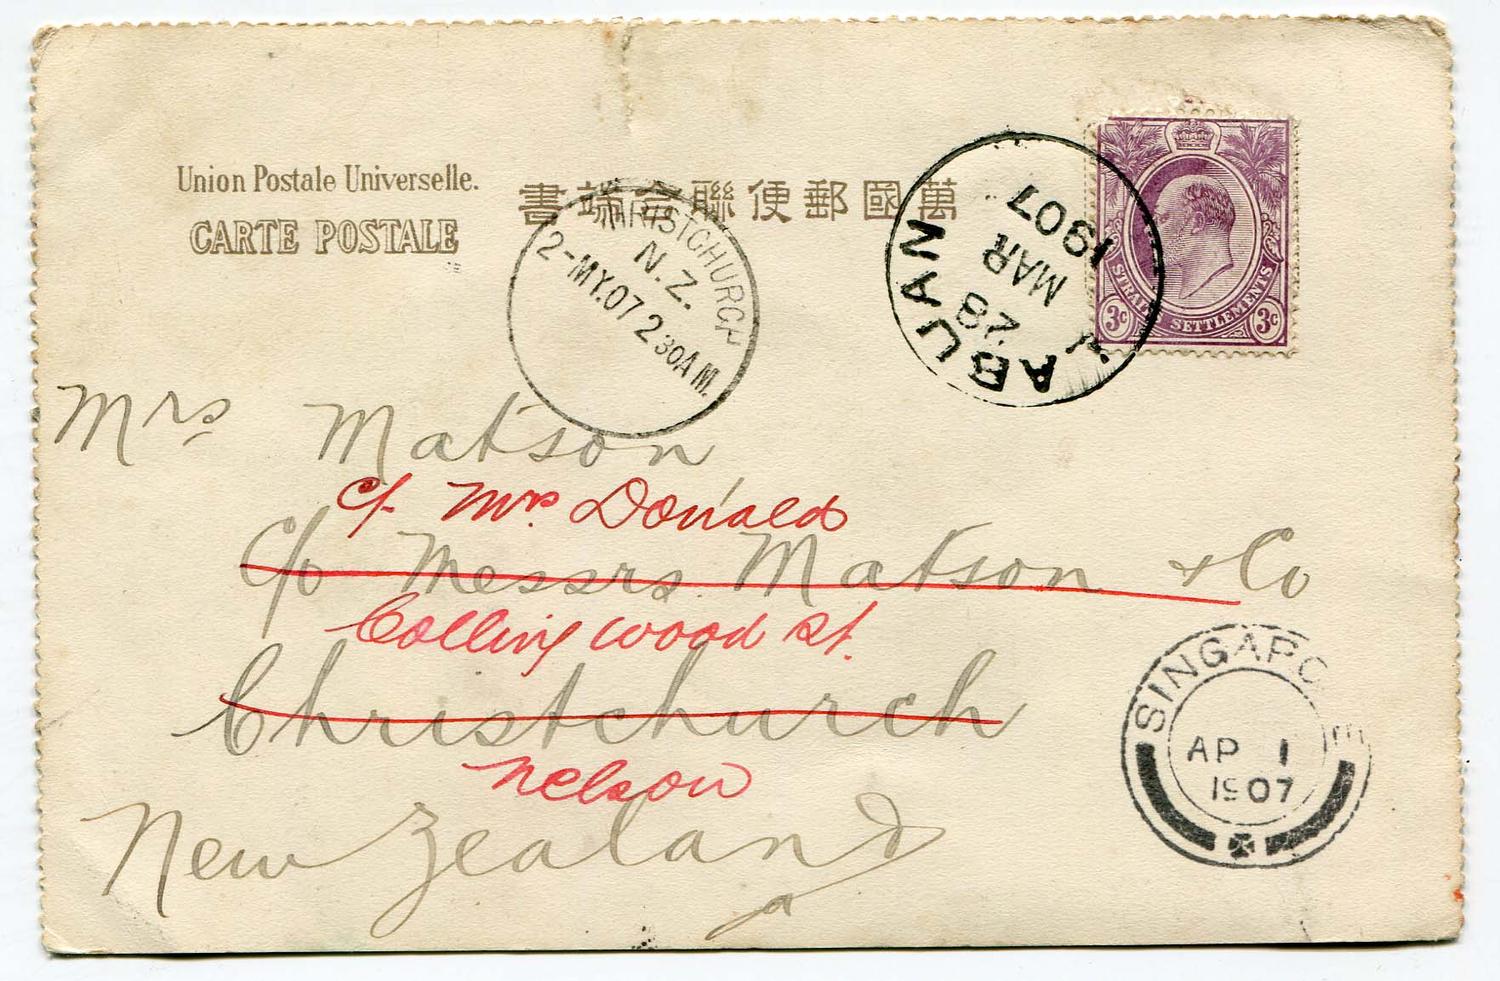 Union Postale Universelle.
CARTE POSTALE
書端合聯便郵國萬
CHRISTCHURCH
N.Z.
2-MY.07 2 30AM.
LABUAN
28
MAR
1907
STRAITS SETTLEMENTS
3c 3c
Mrs Matson
c/- Mrs. Donald
c/o Messrs. Matson & Co
Collingwood St.
Christchurch
Nelson
New Zealand
SINGAPORE
AP 1
1907